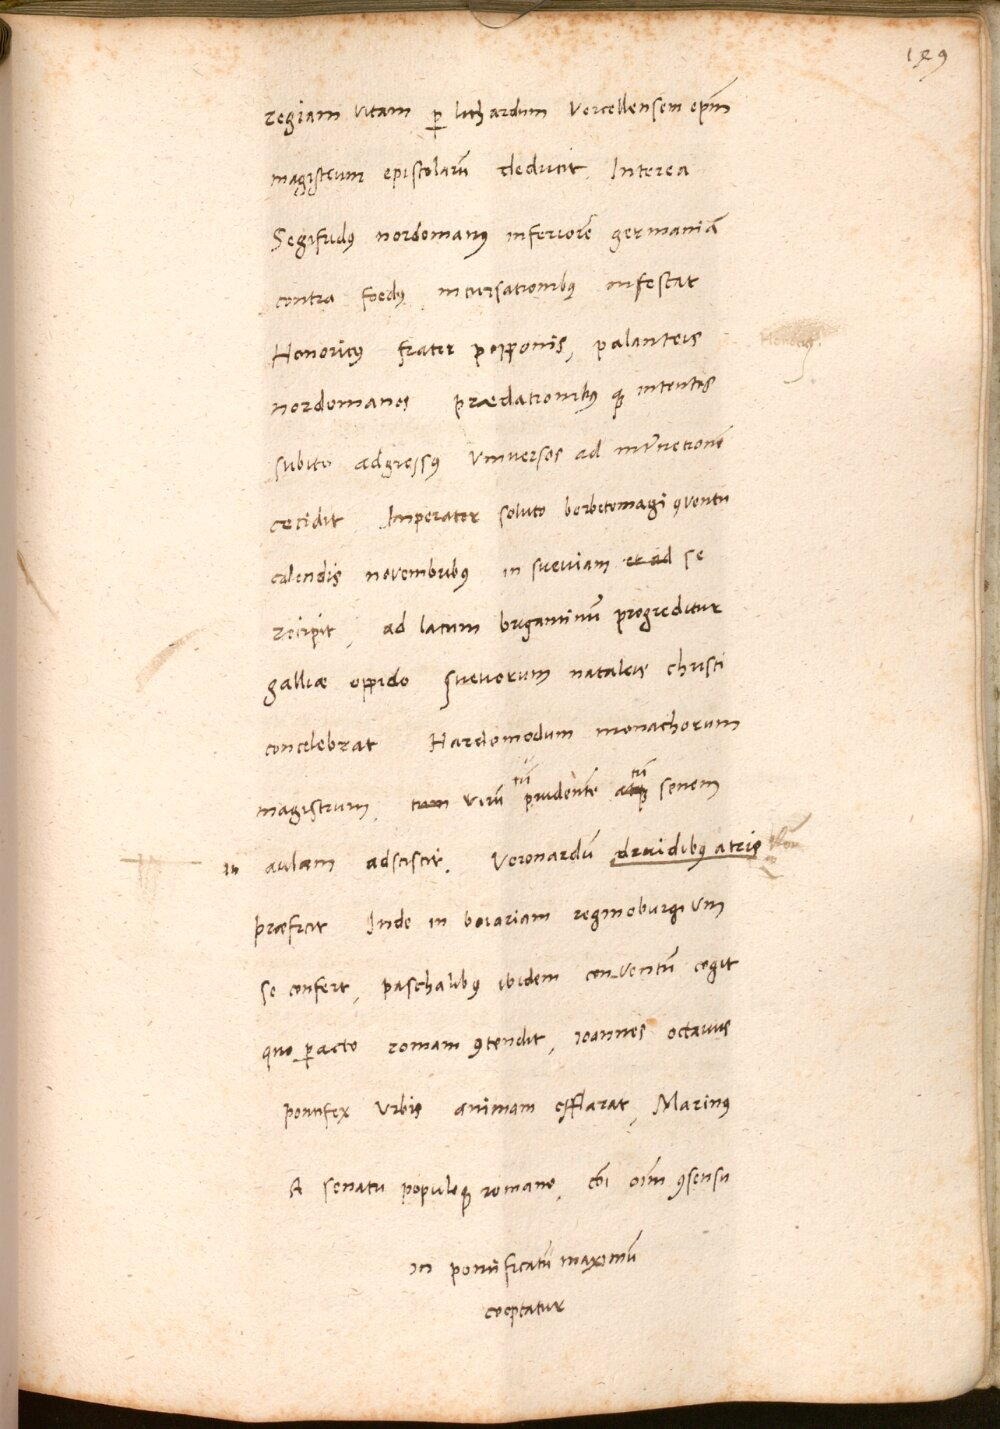 129
regiam vitam ꝑ luthardum Vercellensem epm̄
magistrum epistolarū deducit, Interea
Segifrid⁹ nordomanꝰ inferiorē germaniā
contra foedꝰ incursationibꝰ infestat
Henoricꝰ frater popponis, palanteis
nordomanos prædationibꝰ qꝫ intentos
subito adgressꝰ Vniuersos ad internetionē
cecidit Imperator soluto borbetomagi ꝯventu
calendis novembribꝰ in sueuiam et ad se
recipit, ad lacum brigantinū progreditur
galliæ oppido sueuorum nataleis christi
concelebrat Hartomodum monachorum
magistrum, tum virū tū prudentē atqꝫ tū senem
in aulam adsciscit, Veronardū druidibꝰ atris
præficit Inde in boiariam reginoburgium
se confert, paschalibꝰ ibidem conventū cogit
quo ꝑacto romam ꝯtendit, ioannes octauus
pontifex Vrbis animam efflarat, Marinꝰ
A senatu populoqꝫ romano, oīm ꝯsensu
in pontificatū maximū
cooptatur